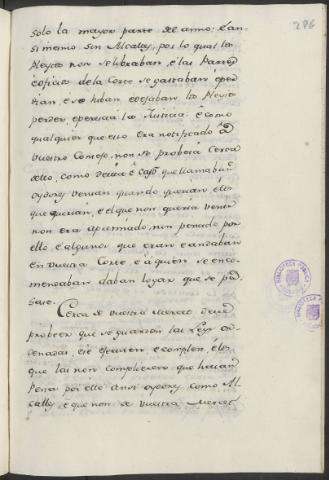 276
solo la mayor parte del anno; E an-
si mismo sin Alcaldes, por lo qual los
Pleytos non se libraban, e las Partes
e oficios de la Corte se gastaban e per
dian, e se hiban e dejaban los Pleytos
perder, e perecia la Justicia: E como
quier que esto era notificado a
vuestro Consejo, non se probeia cerca
dello, como devia e
oydores venian quando querian, e los
que querian, e el que non queria venir
non era apremiado, nin penado por
ello, e algunos que eran e andaban
en vuestra Corte, e a quien se enco-
mendaban daban logar que se pa
sase.
Cerca de vuestra Merced deve
probeer que se guarden las Leyes or
denadas, e se executen e complan, e los
que las non complieren que hayan
Pena por ello ansi oydores como Al
caldes, e que non de vuestra Merced
BIBLIOTECA PUBLICA
BIBLIOTECA PU